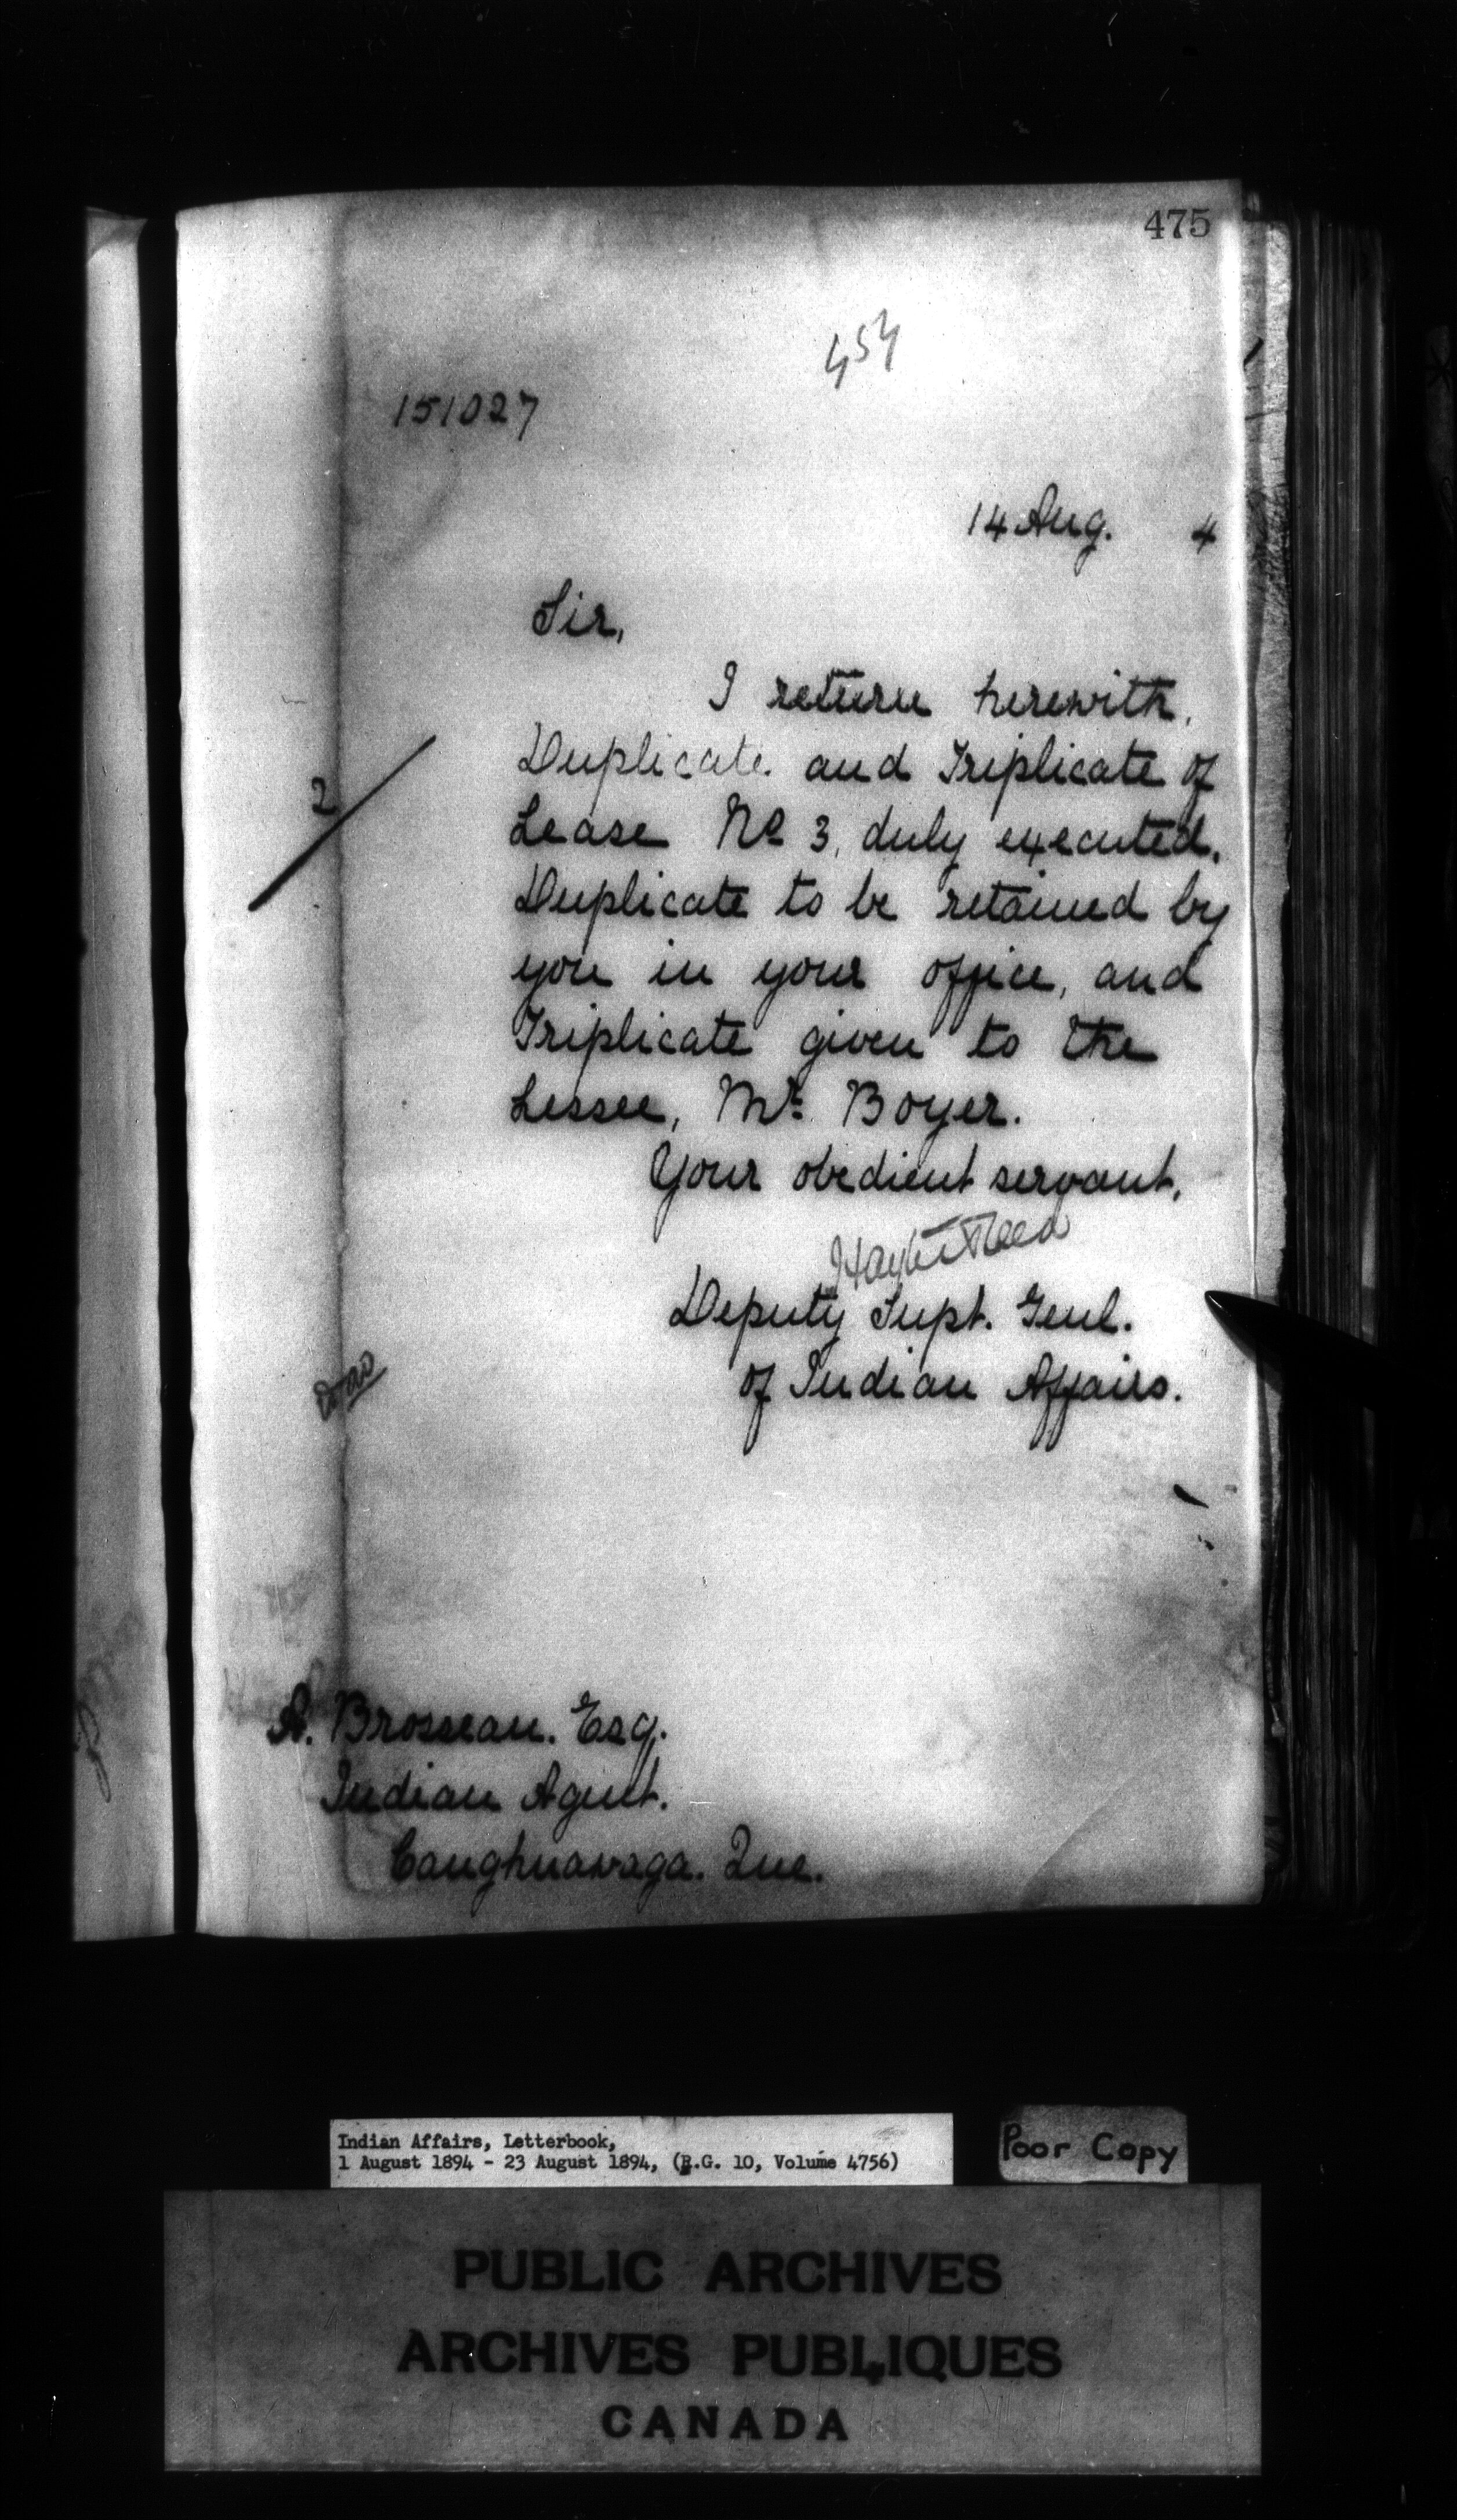 475
454
151027
14 Aug. 4
Sir,
I return herewith,
Duplicate and Triplicate of
2
Lease No 3, duly executed.
Duplicate to be retained by
you in your office, and
Triplicate given to the
Lessee, Mr. Boyer.
Your obedient servant,
Hayter Reed
Deputy Supt. Genl.
of Indian Affairs.
A. Brosseau. Esq.
Indian Agent.
Caughnawaga. Que.
Indian Affairs, Letterbook,
1 August 1894 - 23 August 1894, (R.G. 10, Volume 4756)
Poor Copy
PUBLIC ARCHIVES
ARCHIVES PUBLIQUES
CANADA